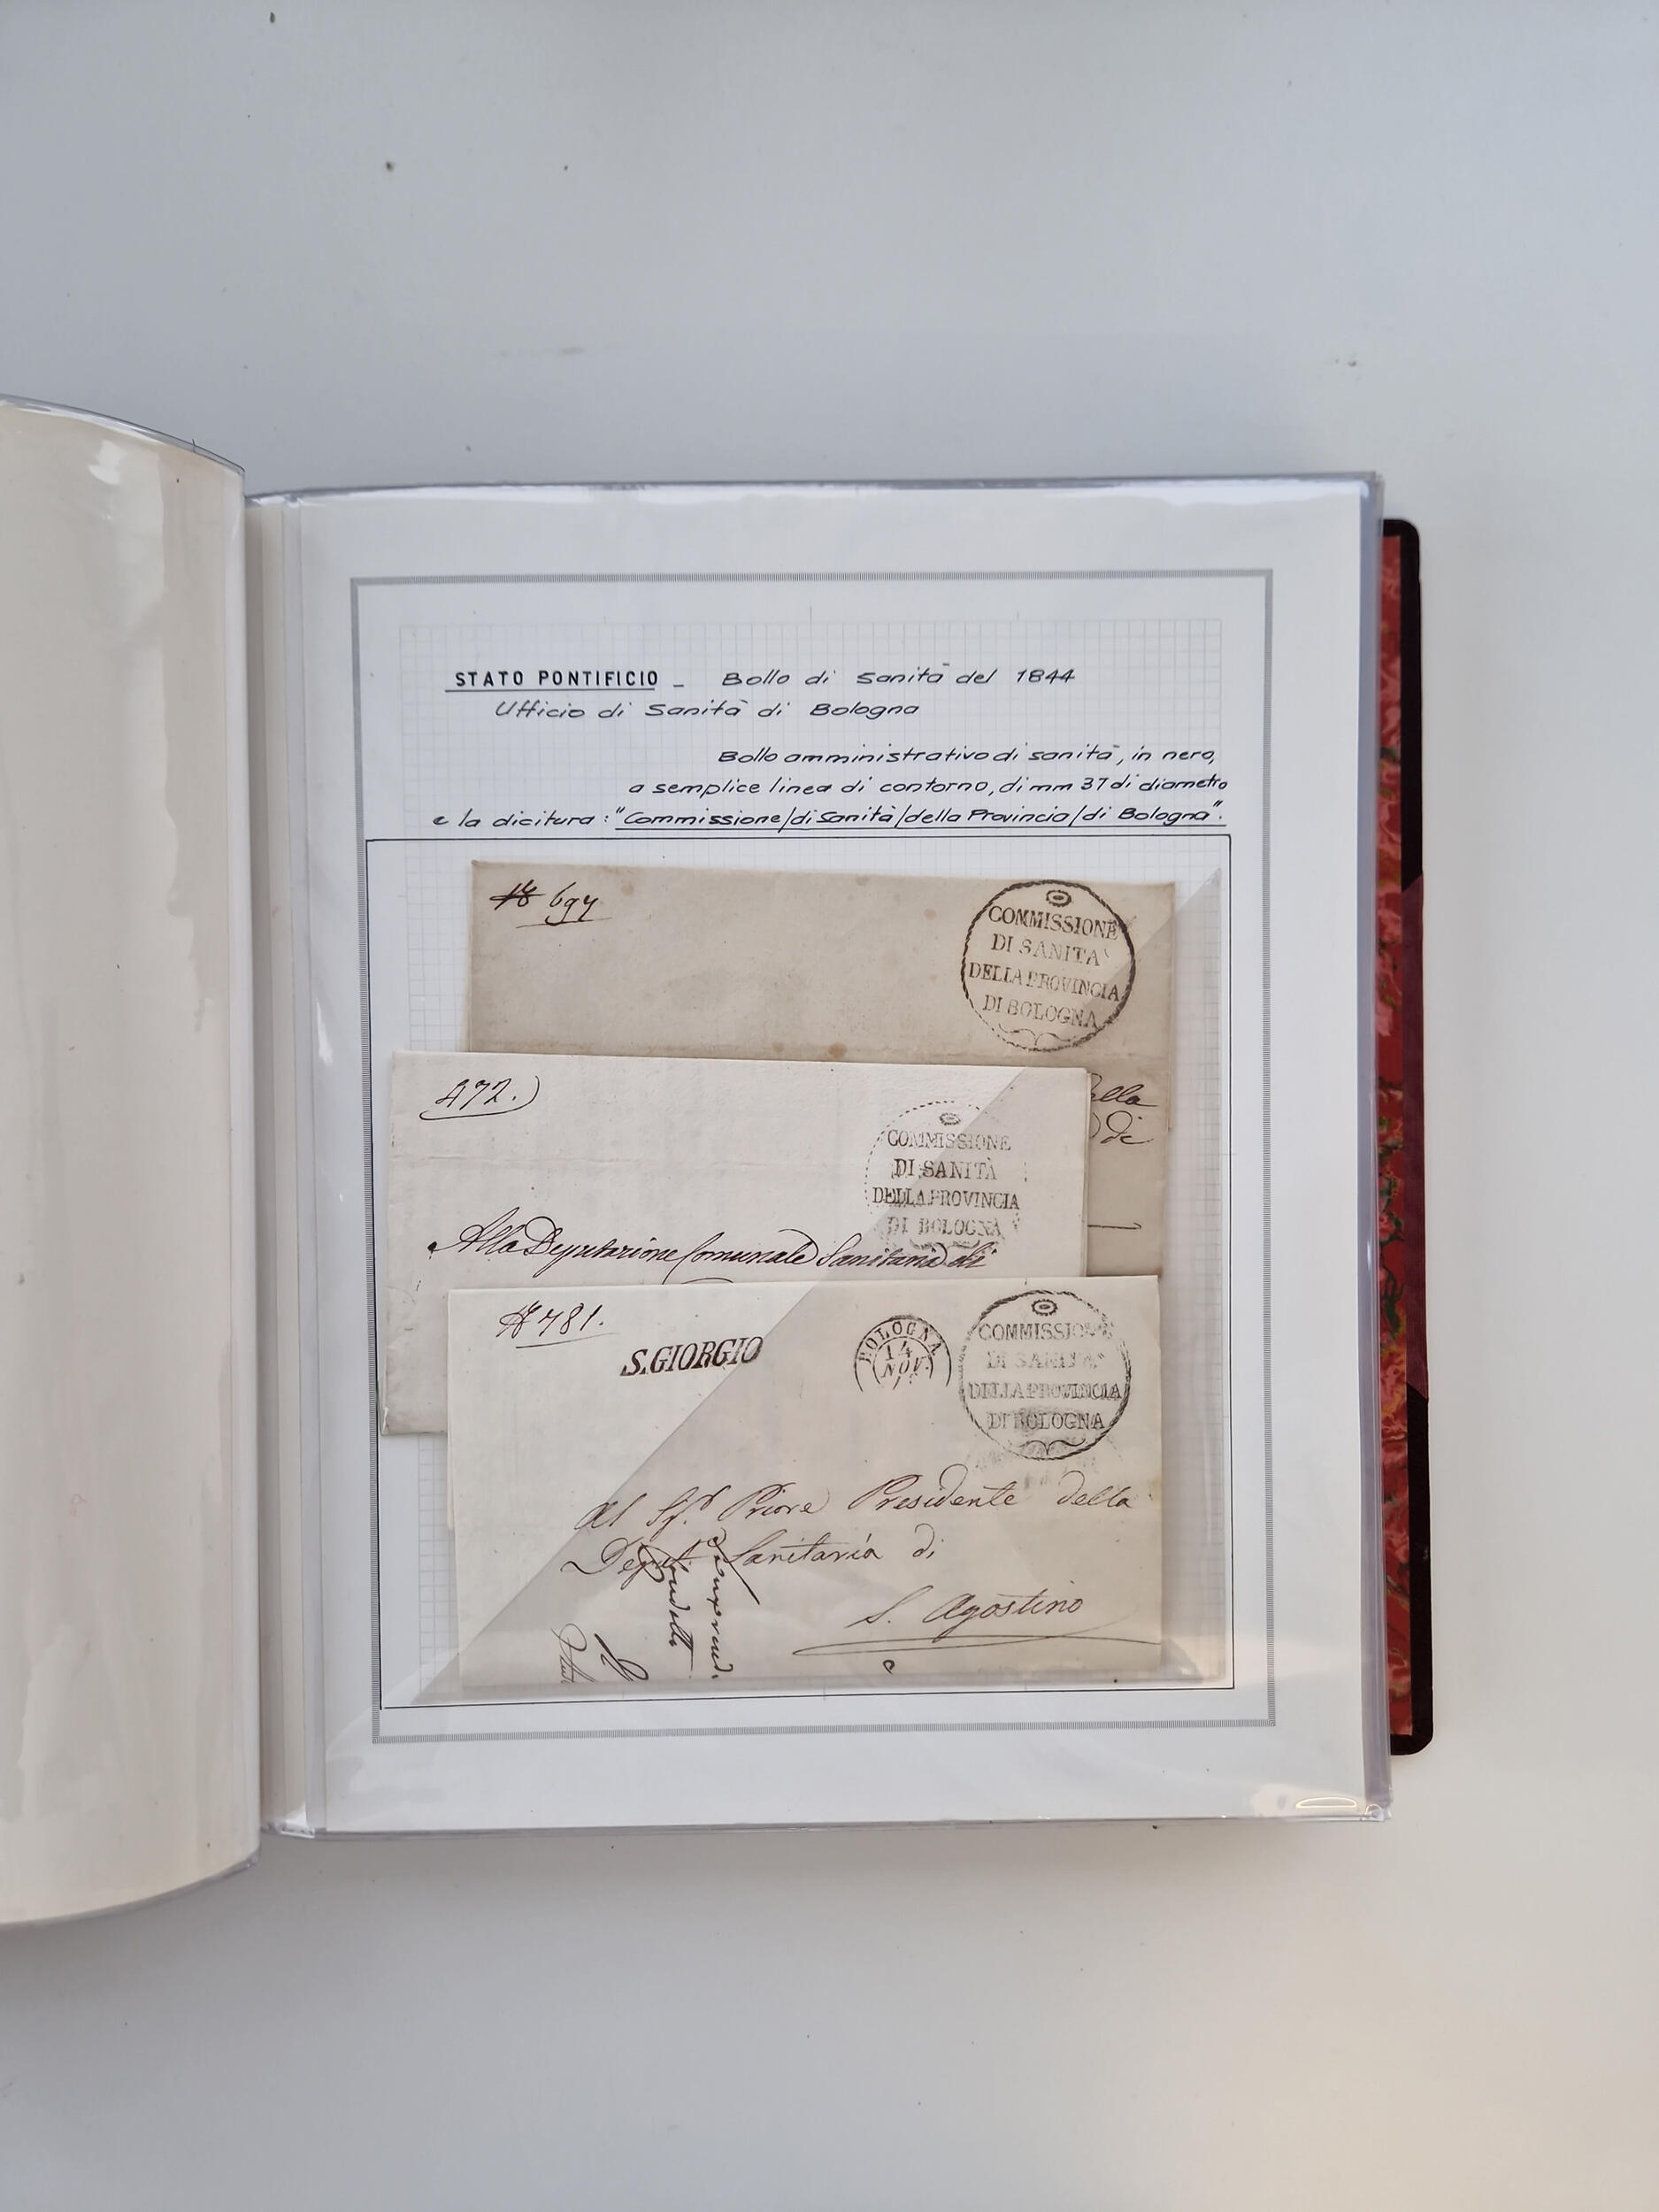 STATO PONTIFICIO - Bollo di Sanità del 1844
Ufficio di Sanità di Bologna
Bollo amministrativo di sanità, in nero,
a semplice linea di contorno, di mm 37 di diametro
e la dicitura: "Commissione/di Sanità/della Provincia/di Bologna".
697
COMMISSIONE
DI SANITA'
DELLA PROVINCIA
DI BOLOGNA
alla
di
472.)
COMMISSIONE
DI SANITÀ
DELLA PROVINCIA
DI BOLOGNA
Alla Deputazione Comunale Sanitaria di
781.
S.GIORGIO
BOLOGNA
14
NOV.
COMMISSIONE
DI SANITA'
DELLA PROVINCIA
DI BOLOGNA
Al Sigr. Priore Presidente della
Deput. Sanitaria di
S. Agostino